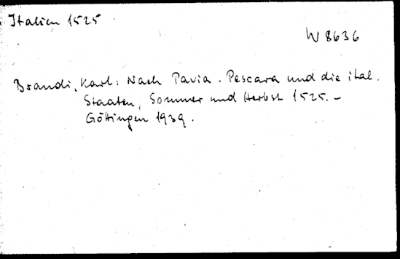 Italien 1525
W 8636
Brandi, Karl: Nach Pavia. Pescara und die ital.
Staaten, Sommer und Herbst 1525. –
Göttingen 1939.